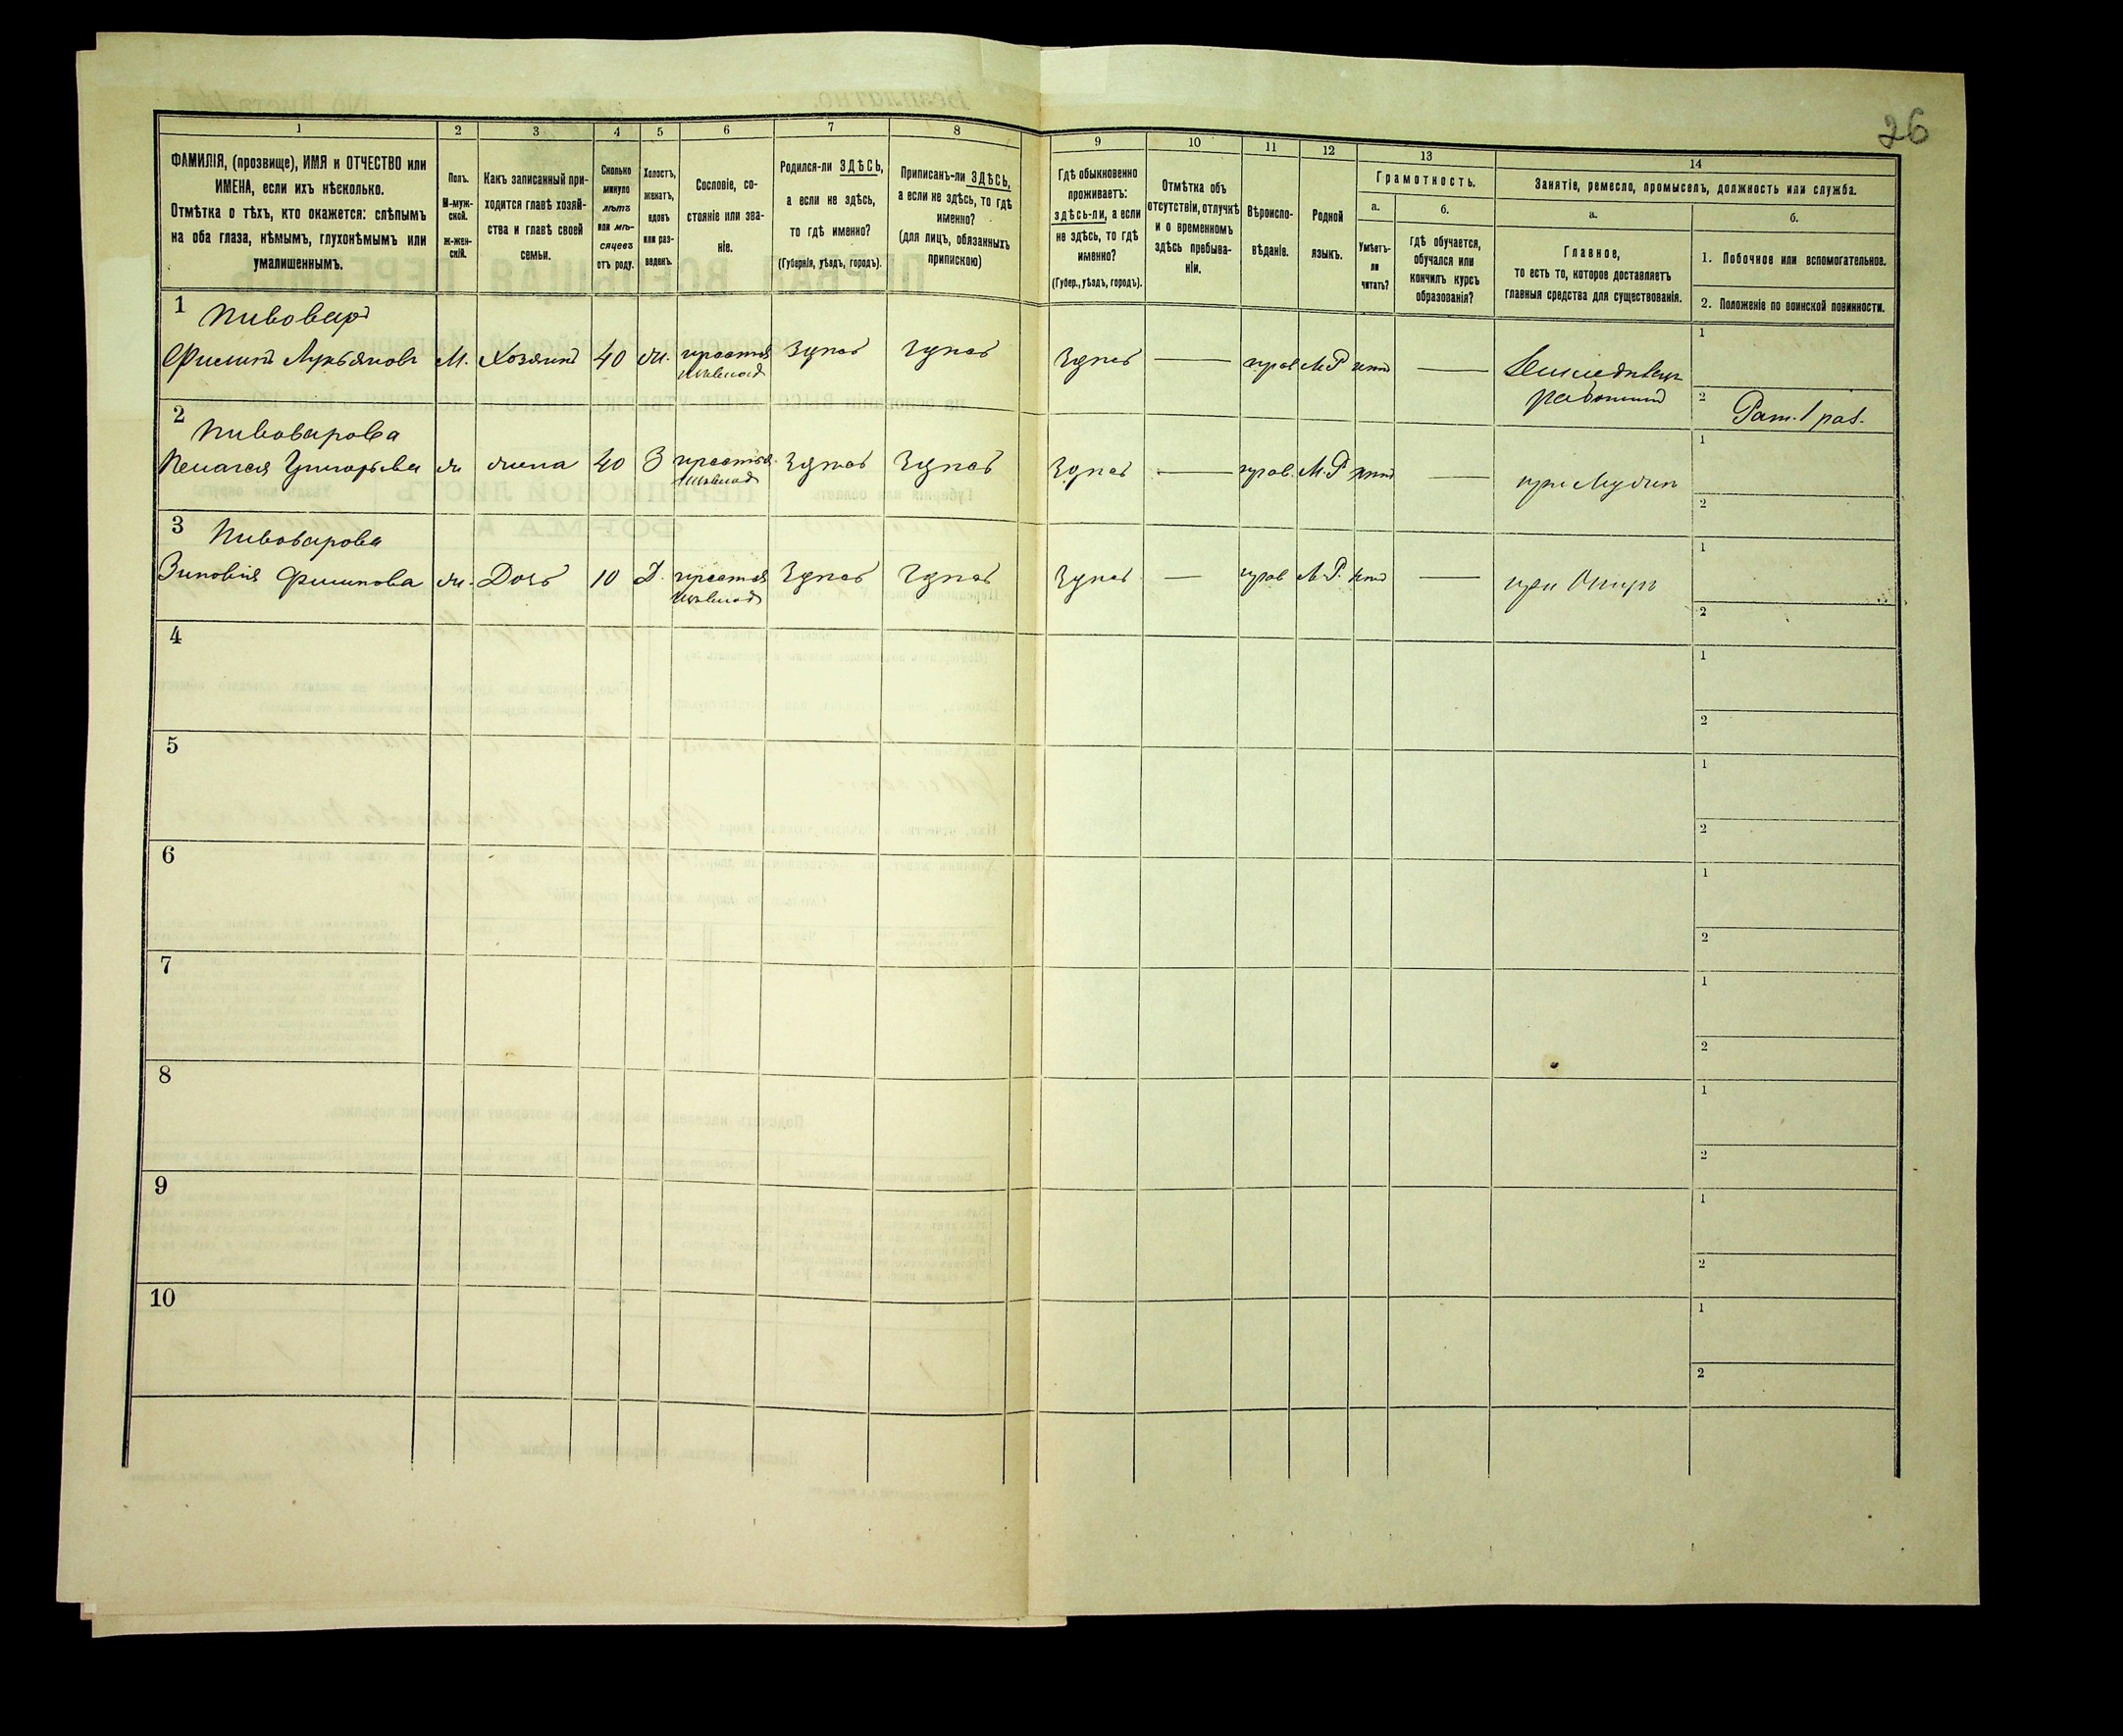 26
1
2
3
4
5
6
7
8
9
10
11
12
13
14
ФАМИЛІЯ, (прозвище), ИМЯ и ОТЧЕСТВО или
ИМЕНА, если ихъ нѣсколько.
Отмѣтка о тѣхъ, кто окажется: слѣпымъ
на оба глаза, нѣмымъ, глухонѣмымъ или
умалишеннымъ.
Полъ.
М-муж-
ской.
ж-жен-
скій.
Какъ записанный при-
ходится главѣ хозяй-
ства и главѣ своей
семьи.
Сколько
минуло
лѣтъ
или мѣ-
сяцевъ
отъ роду.
Холостъ,
женатъ,
вдовъ
или раз-
веденъ.
Сословіе, со-
стояніе или зва-
ніе.
Родился-ли ЗДѢСЬ,
а если не здѣсь,
то гдѣ именно?
(Губернія, уѣздъ, городъ).
Приписанъ-ли ЗДѢСЬ,
а если не здѣсь, то гдѣ
именно?
(для лицъ, обязанныхъ
припискою)
Гдѣ обыкновенно
проживаетъ:
здѣсь-ли, а если
не здѣсь, то гдѣ
именно?
(Губер., уѣздъ, городъ).
Отмѣтка объ
отсутствіи, отлучкѣ
и о временномъ
здѣсь пребыва-
ніи.
Вѣроиспо-
вѣданіе.
Родной
языкъ.
Грамотность.
а.
Умѣетъ-
ли
читать?
б.
гдѣ обучается,
обучался или
кончилъ курсъ
образованія?
Занятіе, ремесло, промыселъ, должность или служба.
а.
Главное,
то есть то, которое доставляетъ
главныя средства для существованія.
б.
1. Побочное или вспомогательное.
2. Положеніе по воинской повинности.
1 Пивоваръ
Филипъ Лукьяновъ М. Хозяинъ 40 ж. Здѣсь Здѣсь Здѣсь — прав М.Р нѣтъ —
1
2 Рат. 1 раз.
2 Пивоварова
Пелагея Григорьева ж жена 40 З Здѣсь Здѣсь Здѣсь — прав. М.Р нѣтъ — при Мужѣ
1
2
3 Пивоварова
Зиновія Филипова ж. Дочь 10 Д. Здѣсь Здѣсь Здѣсь — прав М.Р. нѣтъ — при Отцѣ
1
2
4
1
2
5
1
2
6
1
2
7
1
2
8
1
2
9
1
2
10
1
2